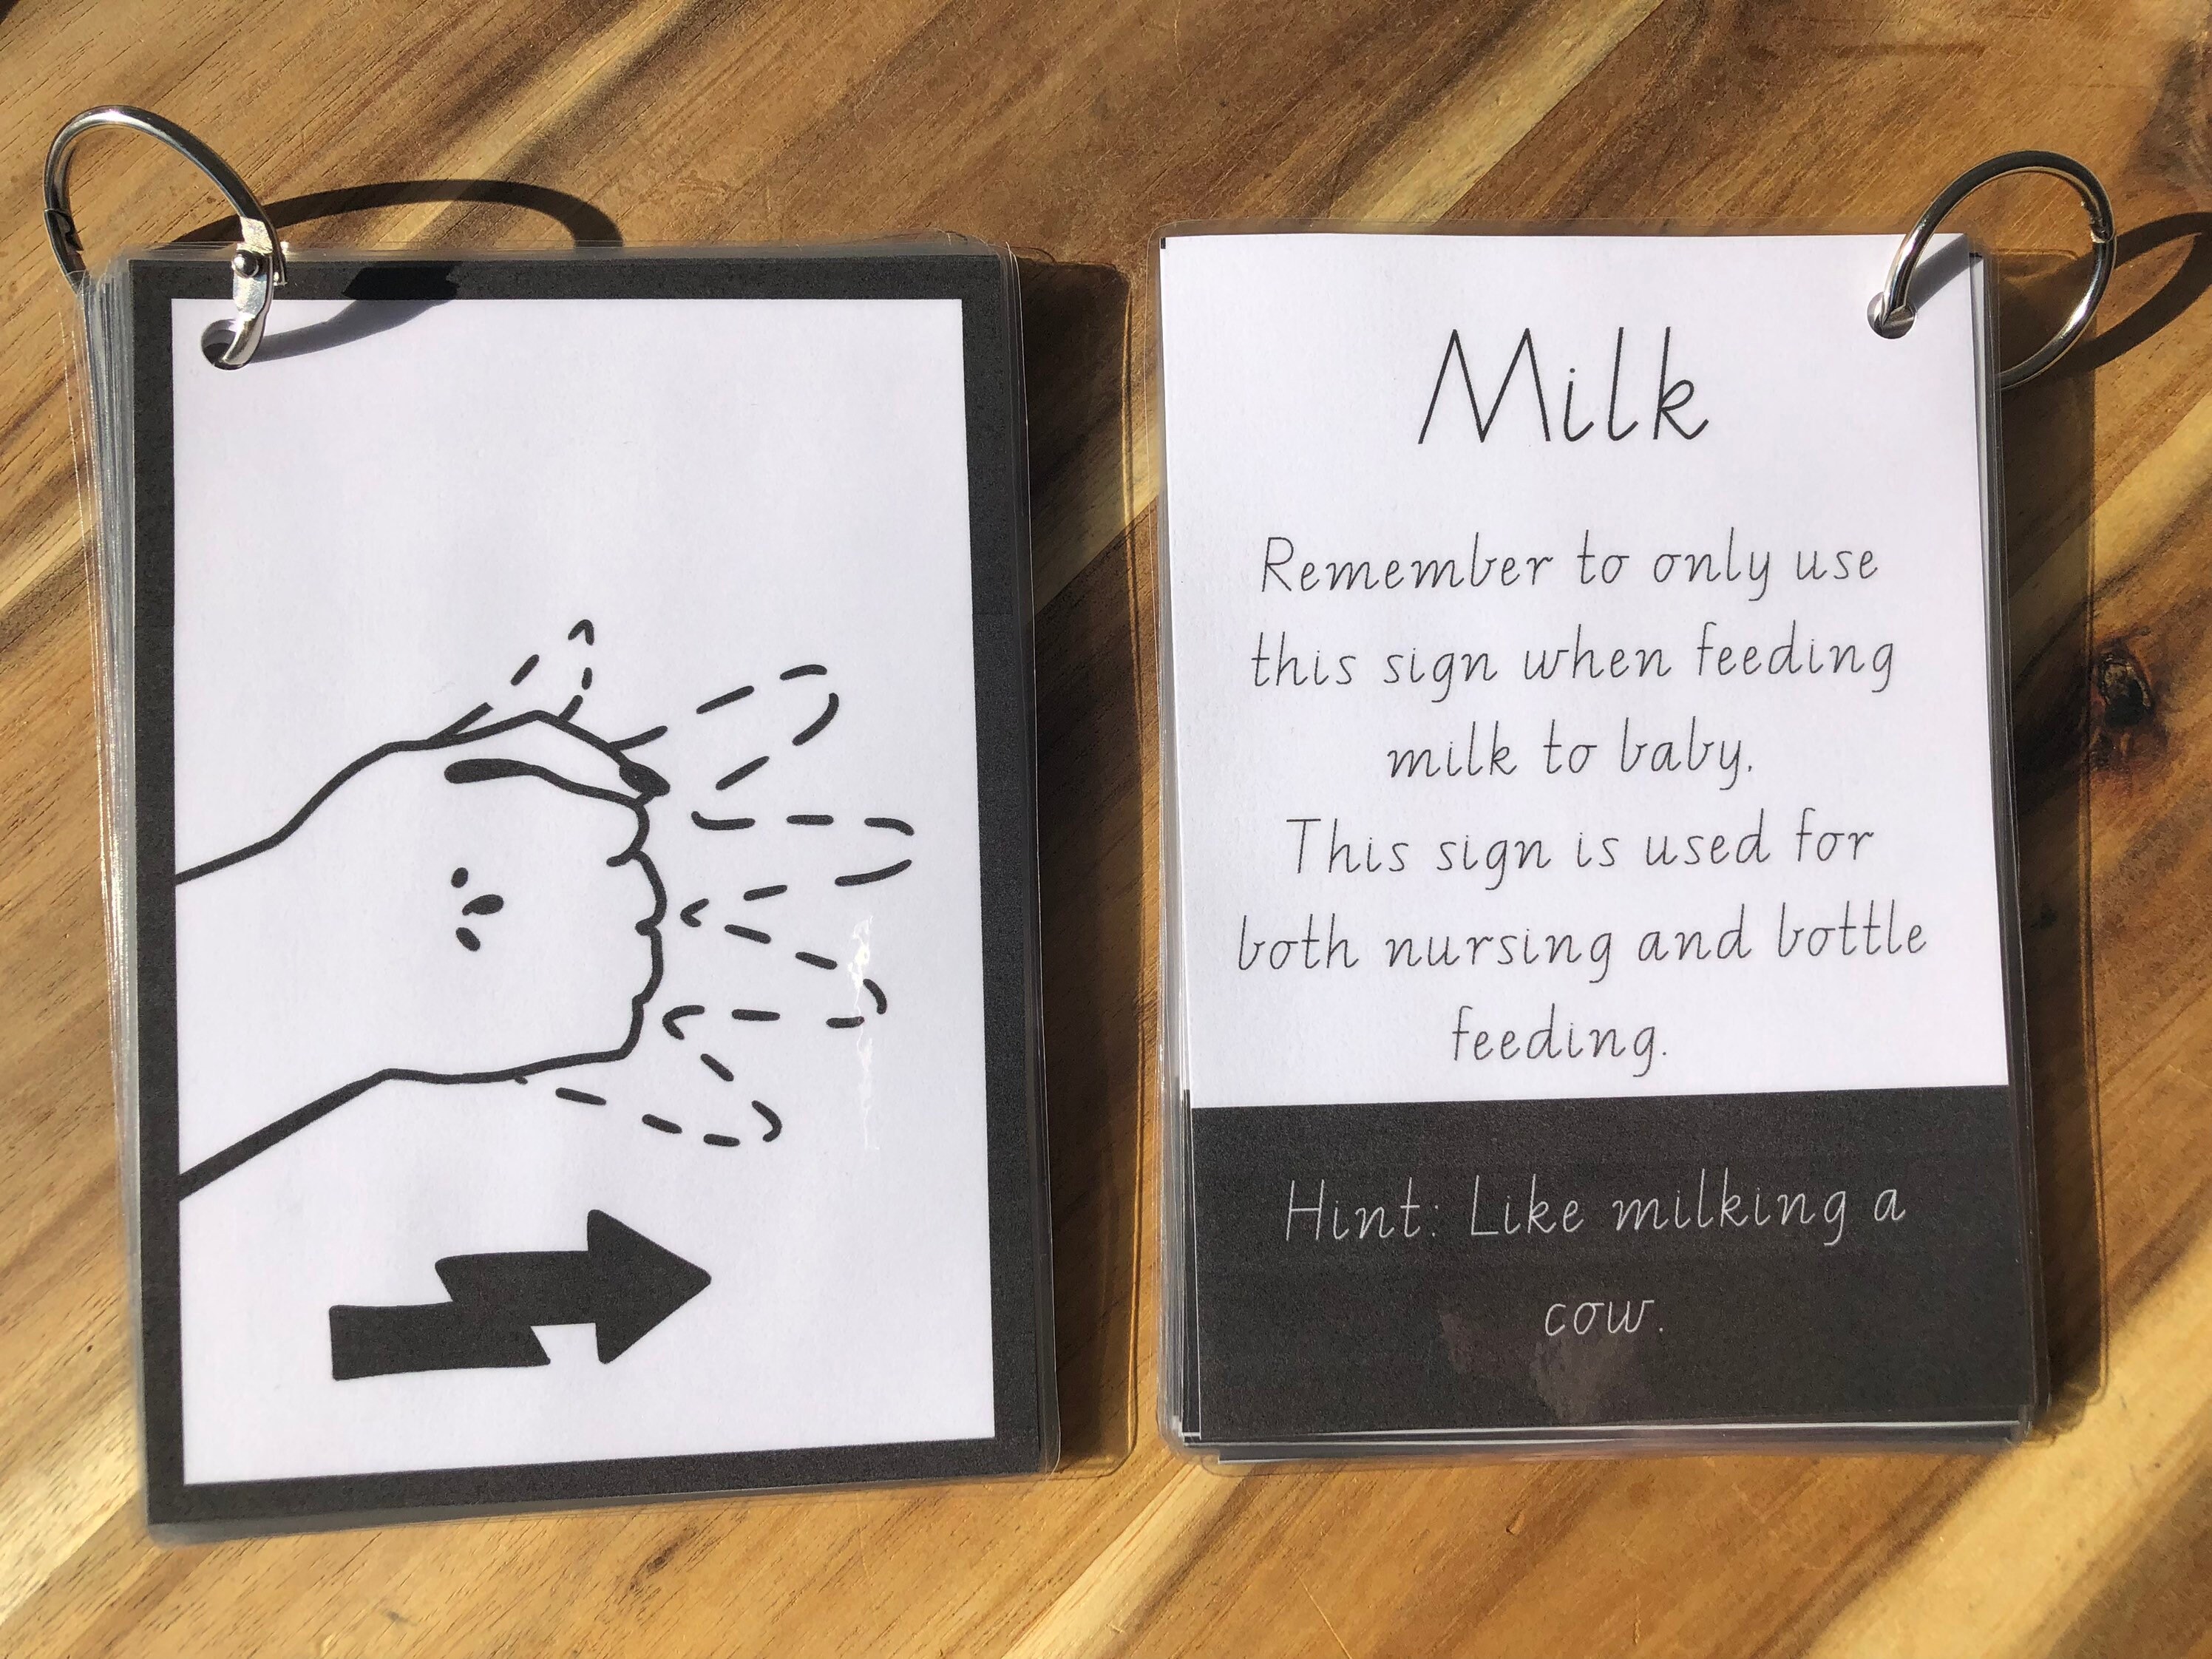 Milk
Remember to only use
this sign when feeding
milk to baby.
This sign is used for
both nursing and bottle
feeding.
Hint: Like milking a
cow.